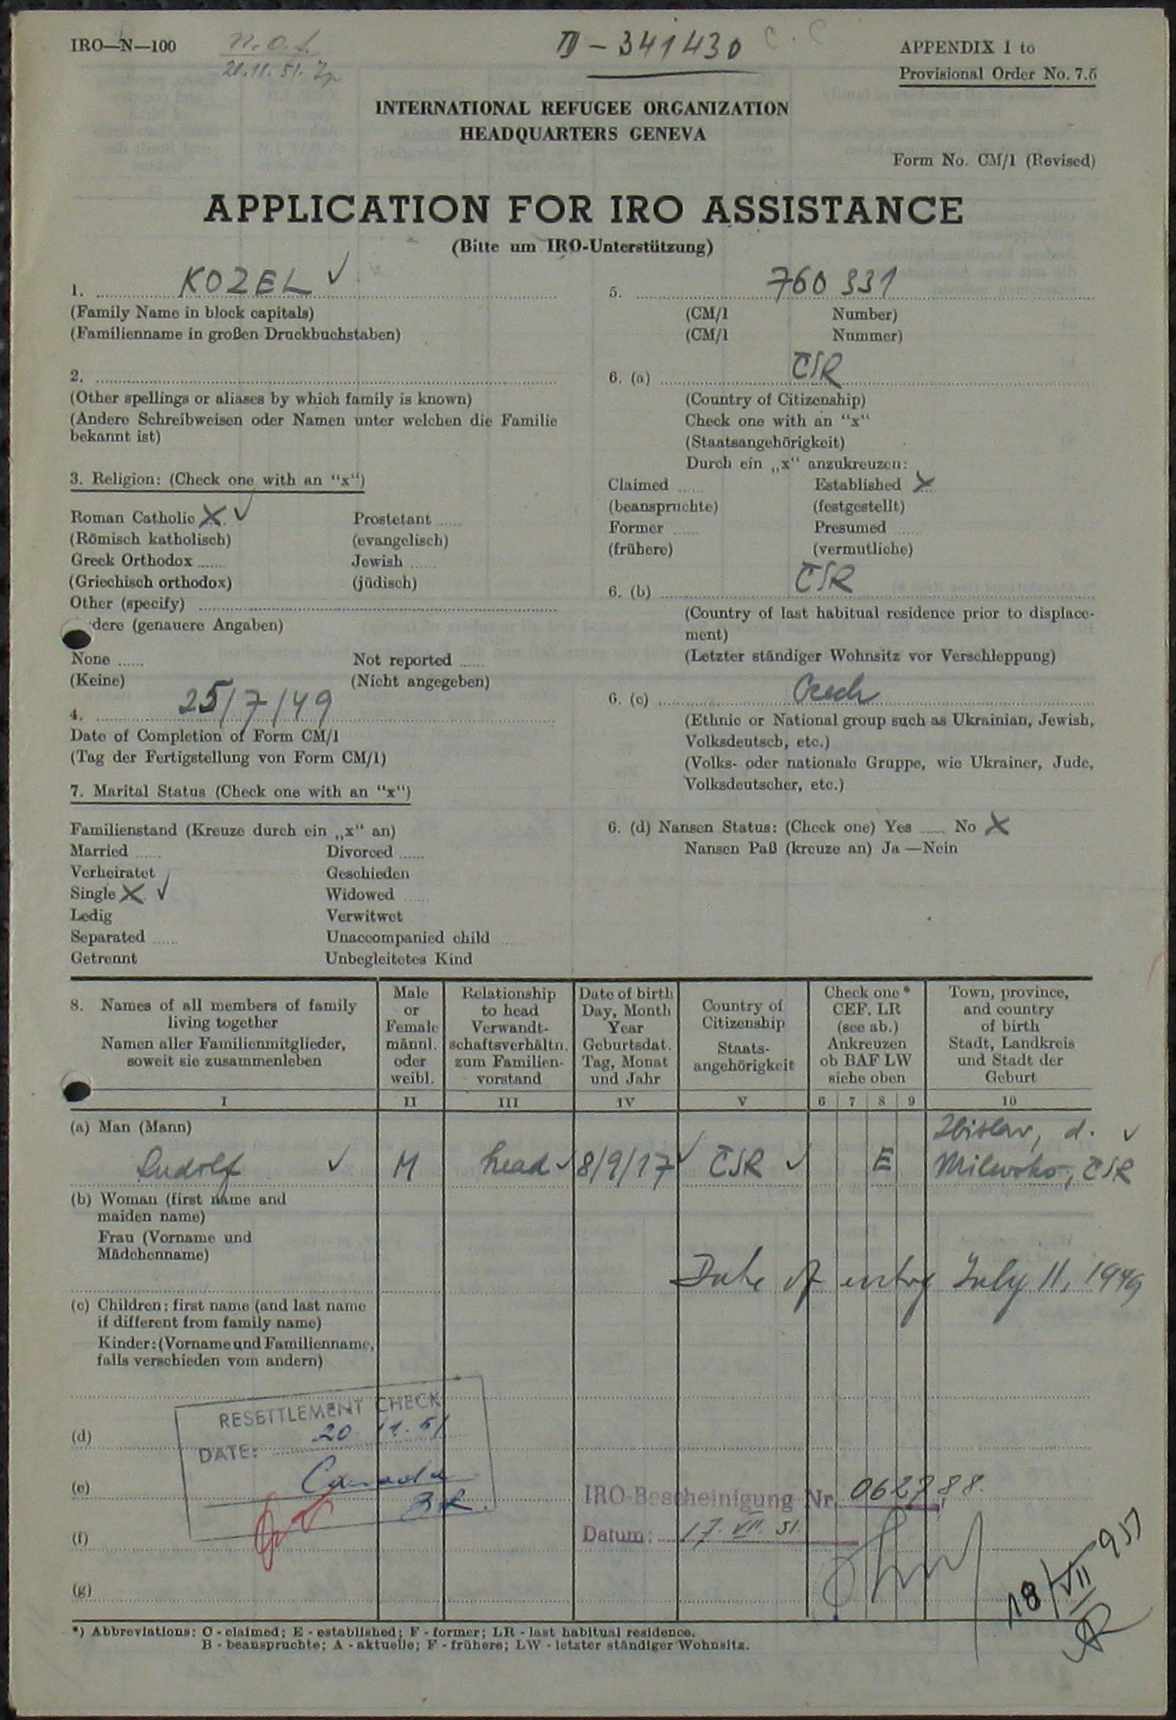 IRO—N—100
n.o.l.
20.11.51.
D - 341430 C.C
APPENDIX 1 to
Provisional Order No. 7.5
INTERNATIONAL REFUGEE ORGANIZATION
HEADQUARTERS GENEVA
Form No. CM/1 (Revised)
APPLICATION FOR IRO ASSISTANCE
(Bitte um IRO-Unterstützung)
1. KOZEL ✓
(Family Name in block capitals)
(Familienname in großen Druckbuchstaben)
2.
(Other spellings or aliases by which family is known)
(Andere Schreibweisen oder Namen unter welchen die Familie
bekannt ist)
3. Religion: (Check one with an "x")
Roman Catholic X ✓ Prostetant
(Römisch katholisch) (evangelisch)
Greek Orthodox Jewish
(Griechisch orthodox) (jüdisch)
Other (specify)
dere (genauere Angaben)
None Not reported
(Keine) (Nicht angegeben)
4. 25/7/49
Date of Completion of Form CM/1
(Tag der Fertigstellung von Form CM/1)
7. Marital Status (Check one with an "x")
Familienstand (Kreuze durch ein „x" an)
Married Divorced
Verheiratet Geschieden
Single X ✓ Widowed
Ledig Verwitwet
Separated Unaccompanied child
Getrennt Unbegleitetes Kind
5. 760 331
(CM/1 Number)
(CM/1 Nummer)
6. (a) ČSR
(Country of Citizenship)
Check one with an "x"
(Staatsangehörigkeit)
Durch ein „x" anzukreuzen:
Claimed Established X
(beanspruchte) (festgestellt)
Former Presumed
(frühere) (vermutliche)
6. (b) ČSR
(Country of last habitual residence prior to displace-
ment)
(Letzter ständiger Wohnsitz vor Verschleppung)
6. (c) Czech
(Ethnic or National group such as Ukrainian, Jewish,
Volksdeutsch, etc.)
(Volks- oder nationale Gruppe, wie Ukrainer, Jude,
Volksdeutscher, etc.)
6. (d) Nansen Status: (Check one) Yes No X
Nansen Paß (kreuze an) Ja —Nein
8. Names of all members of family
living together
Namen aller Familienmitglieder,
soweit sie zusammenleben
Male
or
Female
männl.
oder
weibl.
Relationship
to head
Verwandt-
schaftsverhältn.
zum Familien-
vorstand
Date of birth
Day, Month
Year
Geburtsdat.
Tag, Monat
und Jahr
Country of
Citizenship
Staats-
angehörigkeit
Check one *
CEF. LR
(see ab.)
Ankreuzen
ob BAF LW
siehe oben
Town, province,
and country
of birth
Stadt, Landkreis
und Stadt der
Geburt
I II III IV V 6 7 8 9 10
(a) Man (Mann)
Zbislav, d. ✓
Rudolf ✓ M head ✓ 8/9/17 ✓ ČSR ✓ E Milevsko, ČSR
(b) Woman (first name and
maiden name)
Frau (Vorname und
Mädchenname)
Date of entry July 11, 1949
(c) Children: first name (and last name
if different from family name)
Kinder: (Vorname und Familienname,
falls verschieden vom andern)
RESETTLEMENT CHECK
(d)
DATE: 20 11. 51
(e) Canada
IRO-Bescheinigung Nr. 062788.
(f)
Datum: 17. VII. 51.
18/VII 951
(g)
*) Abbreviations: C - claimed; E - established; F - former; LR - last habitual residence.
B - beanspruchte; A - aktuelle; F - frühere; LW - letzter ständiger Wohnsitz.